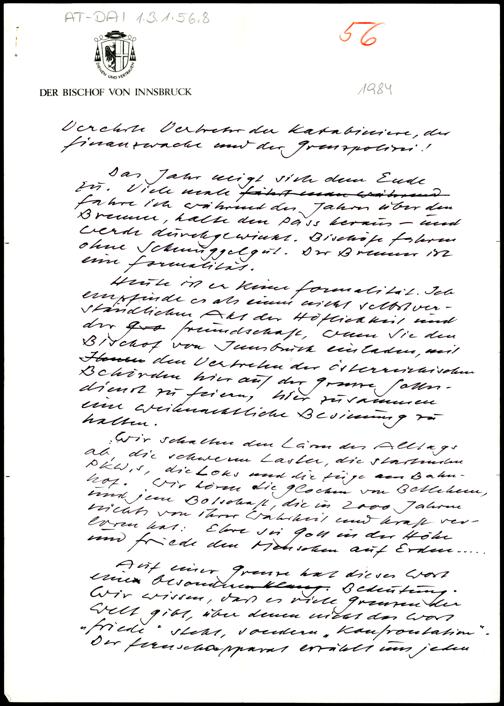 AT-DAI 1.3.1.56.8
56
1984
DIENEN UND VERTRAUEN
DER BISCHOF VON INNSBRUCK
Verehrte Vertreter der Karabiniere, der
Finanzwache und der Grenzpolizei!
Das Jahr neigt sich dem Ende
zu. Viele male fährt man während
fahre ich während des Jahres über den
Brenner, halte den Pass heraus – und
werde durchgewinkt. Bischöfe fahren
ohne Schmuggelgut. Der Brenner ist
eine Formalität.
Heute ist er keine Formalität. Ich
empfinde es als einen nicht selbstver-
ständlichen Akt der Höflichkeit und
der Freundschaft, wenn Sie den
Bischof von Innsbruck einladen, mit
Ihnen den Vertretern der österreichischen
Behörden hier auf der Grenze Gottes-
dienst zu feiern, hier zusammen
eine weihnachtliche Besinnung zu
halten.
Wir schalten den Lärm des Alltags
ab, die schweren Laster, die startenden
PKW,s, die Loks und die Züge am Bahn-
hof. Wir hören die Glocken von Betlehem,
und jene Botschaft, die in 2000 Jahren
nichts von ihrer Wahrheit und Kraft ver-
loren hat: Ehre sei Gott in der Höhe
und Friede den Menschen auf Erden.....
Auf einer Grenze hat dieses Wort
eine besondere Klang. Bedeutung.
Wir wissen, dass es viele Grenzen der
Welt gibt, über denen nicht das Wort
„Friede" steht, sondern „Konfrontation".
Der Fernsehapparat erzählt uns jeden